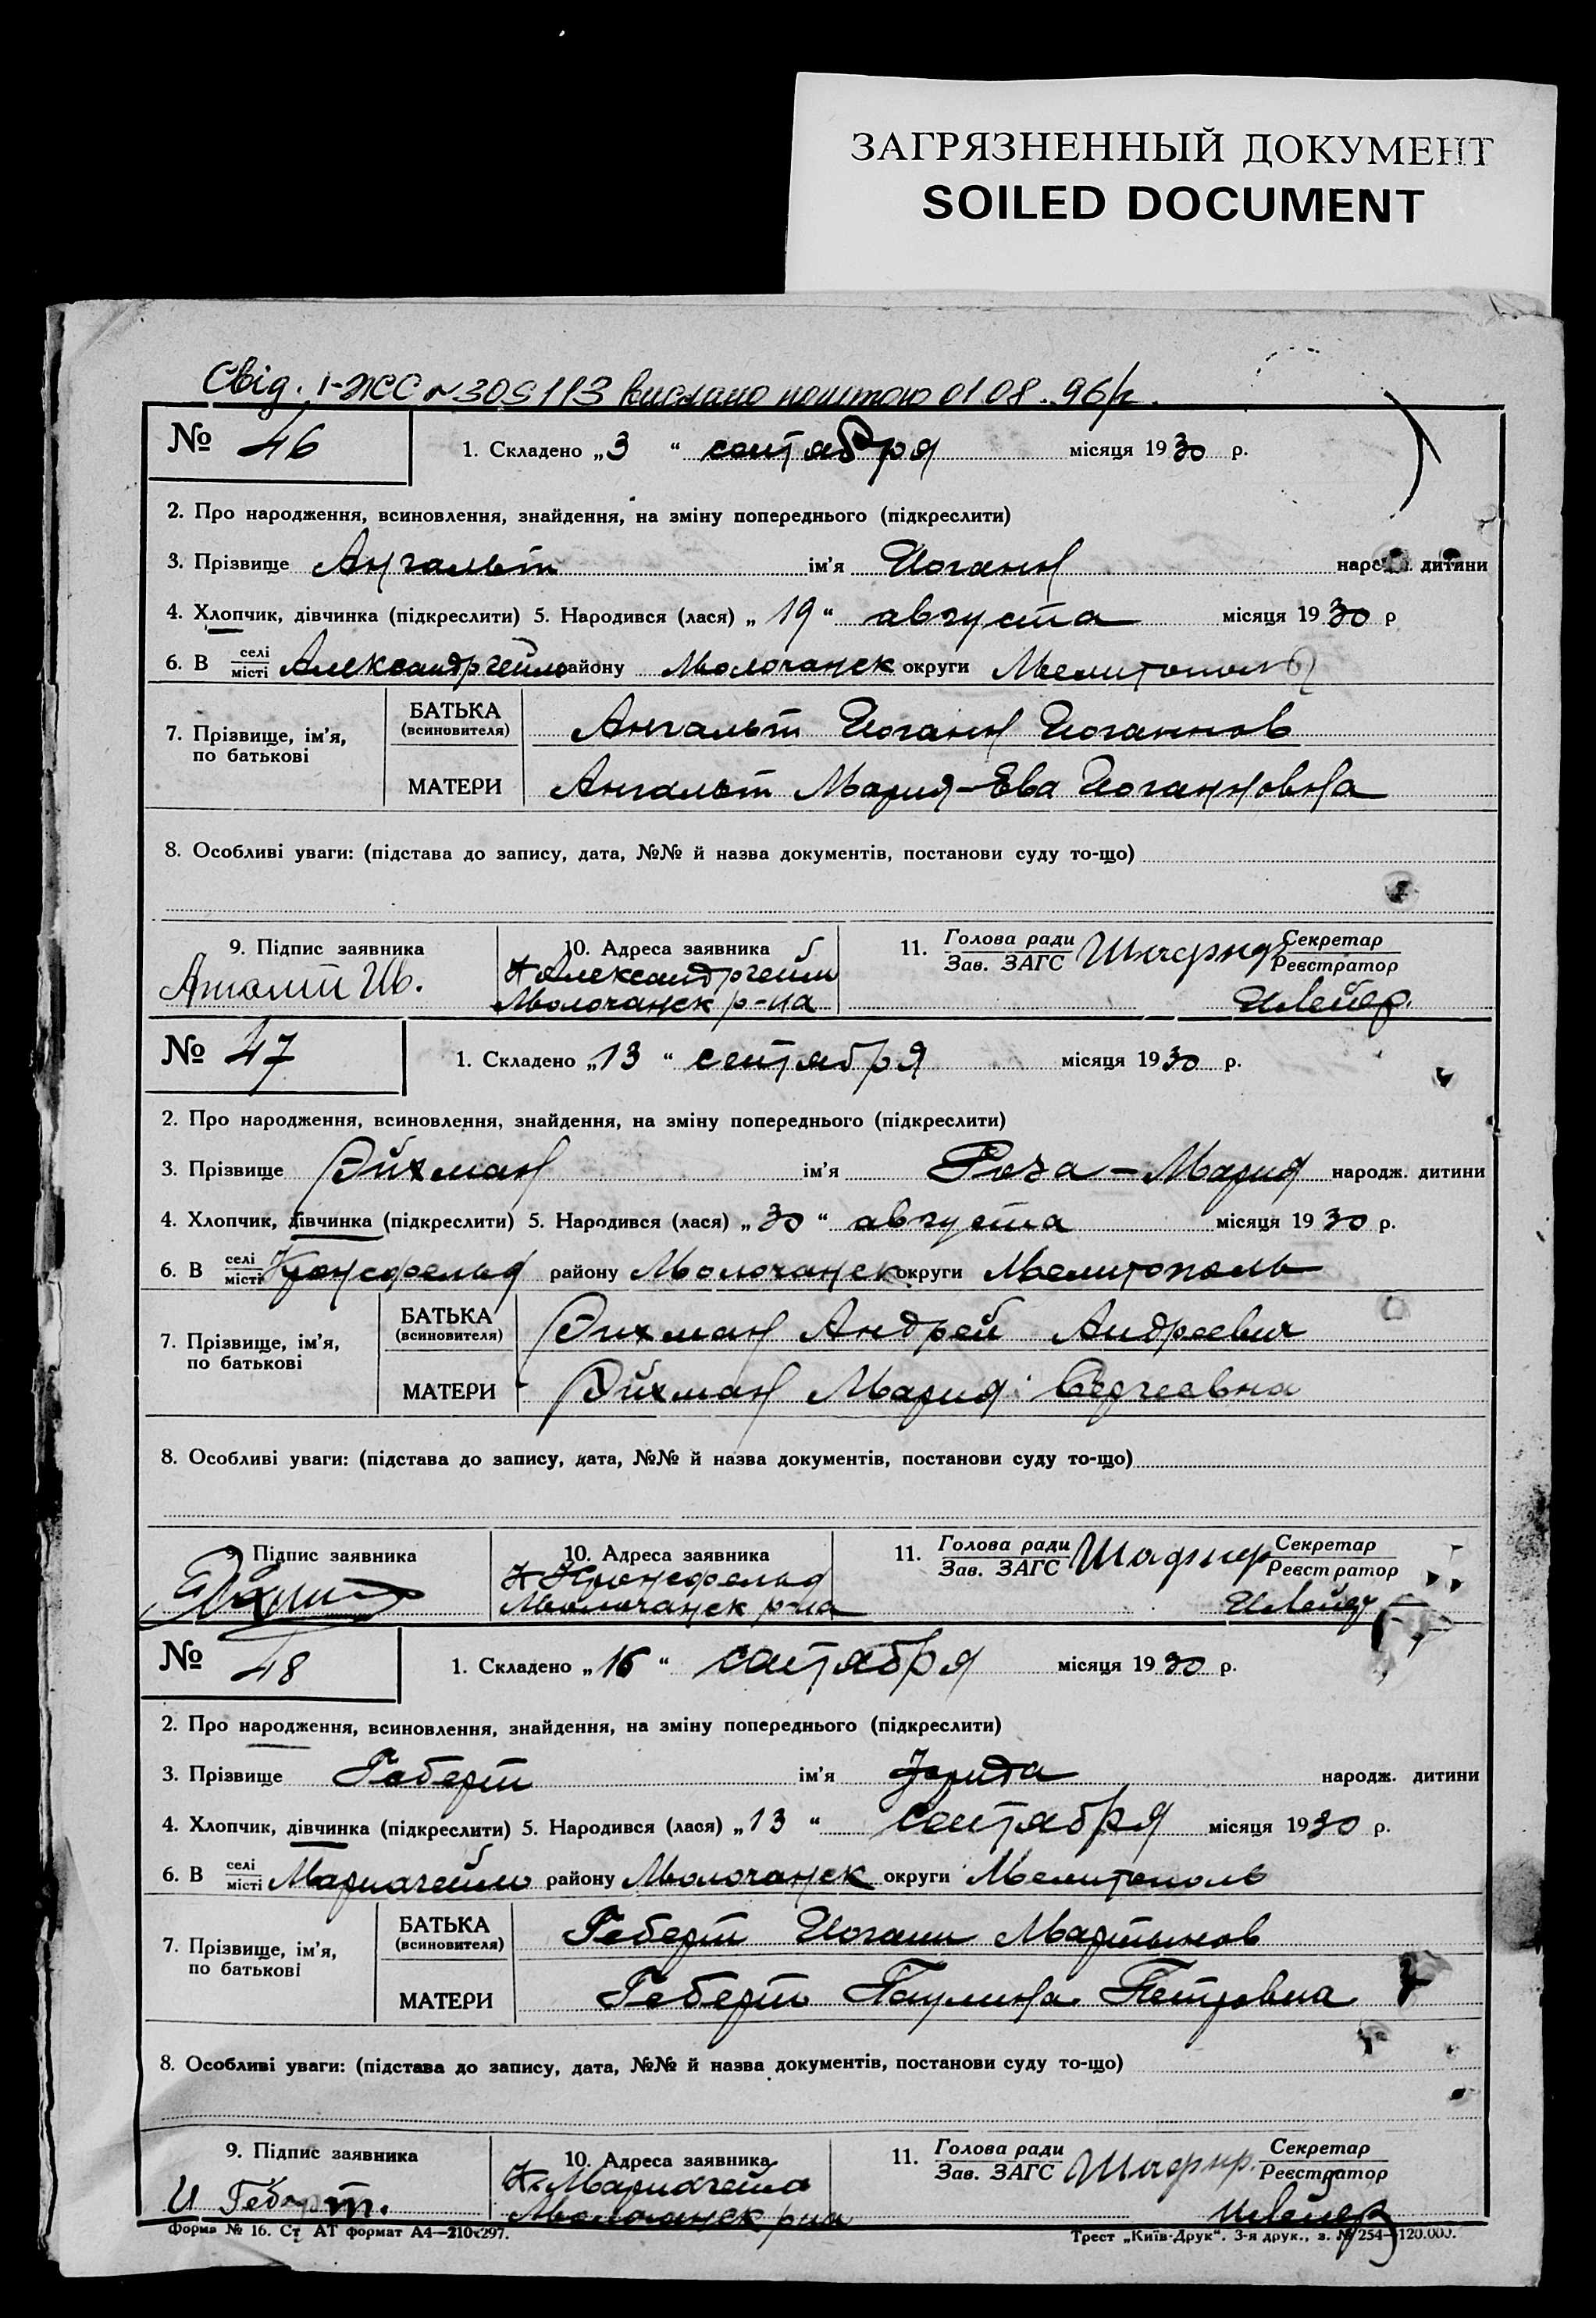 ЗАГРЯЗНЕННЫЙ ДОКУМЕНТ
SOILED DOCUMENT
Свід. І-ЖС № 305113 вислано поштою 01.08.96р.
№ 46 1. Складено „3“ сентября місяця 1930 р.
2. Про народження, всиновлення, знайдення, на зміну попереднього (підкреслити)
3. Прізвище Ангальт ім'я Иоганн народж. дитини
4. Хлопчик, дівчинка (підкреслити) 5. Народився (лася) „19“ августа місяця 1930 р
6. В селі місті Александргейм району Молочанск округи Мелитополь
7. Прізвище, ім'я, по батькові
БАТЬКА (всиновителя) Ангальт Иоганн Иоганнов
МАТЕРИ Ангальт Мария-Ева Иогановна
8. Особливі уваги: (підстава до запису, дата, №№ й назва документів, постанови суду то-що)
9. Підпис заявника 10. Адреса заявника 11. Голова ради Зав. ЗАГС Шафир Секретар Реєстратор
Ангальт Ив. Александргейм
Молочанск р-на
№ 47 1. Складено „13“ сентября місяця 1930 р.
2. Про народження, всиновлення, знайдення, на зміну попереднього (підкреслити)
3. Прізвище Эйхман ім'я Роза-Мария народж. дитини
4. Хлопчик, дівчинка (підкреслити) 5. Народився (лася) „30“ августа місяця 1930 р.
6. В селі місті Кронсфельд району Молочанск округи Мелитополь
7. Прізвище, ім'я, по батькові
БАТЬКА (всиновителя) Эйхман Андрей Андреевич
МАТЕРИ Эйхман Мария Сергеевна
8. Особливі уваги: (підстава до запису, дата, №№ й назва документів, постанови суду то-що)
9. Підпис заявника 10. Адреса заявника 11. Голова ради Зав. ЗАГС Шафир Секретар Реєстратор
Кронсфельд
Молочанск р-на
№ 48 1. Складено „16“ сентября місяця 1930 р.
2. Про народження, всиновлення, знайдення, на зміну попереднього (підкреслити)
3. Прізвище Геберт ім'я Фрида народж. дитини
4. Хлопчик, дівчинка (підкреслити) 5. Народився (лася) „13“ сентября місяця 1930 р.
6. В селі місті Мариагейм району Молочанск округи Мелитополь
7. Прізвище, ім'я, по батькові
БАТЬКА (всиновителя) Геберт Иоганн Мартынов
МАТЕРИ Геберт Паулина Петровна
8. Особливі уваги: (підстава до запису, дата, №№ й назва документів, постанови суду то-що)
9. Підпис заявника 10. Адреса заявника 11. Голова ради Зав. ЗАГС Шафир. Секретар Реєстратор
И Геберт. Мариагейм
Молочанск р-на
Форма № 16. Ст АТ формат А4—210х297. Трест „Київ-Друк“. 3-я друк., з. № 254—120.000.